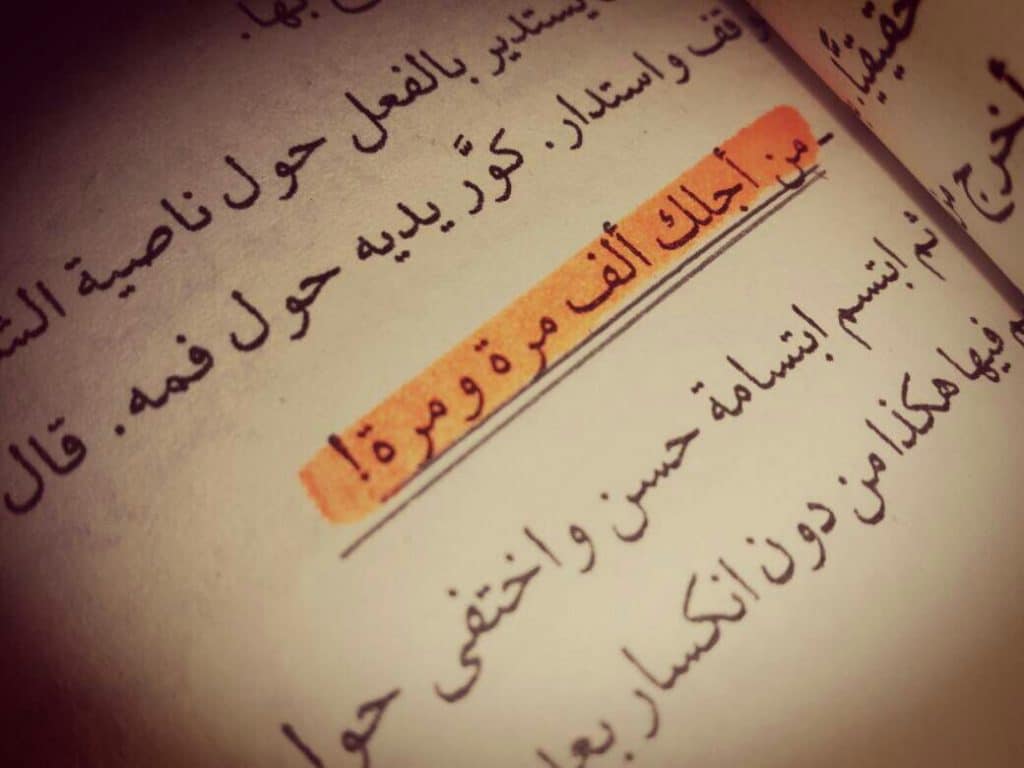 بها.
يستدير بالفعل حول ناصية
وقف واستدار. كوَّر يديه حول فمه. قال
- من أجلك ألف مرة ومرة!
ثم ابتسم ابتسامة حسن واختفى حول
فيها هكذا من دون انكسار
حقيقيًّا.
أخرج